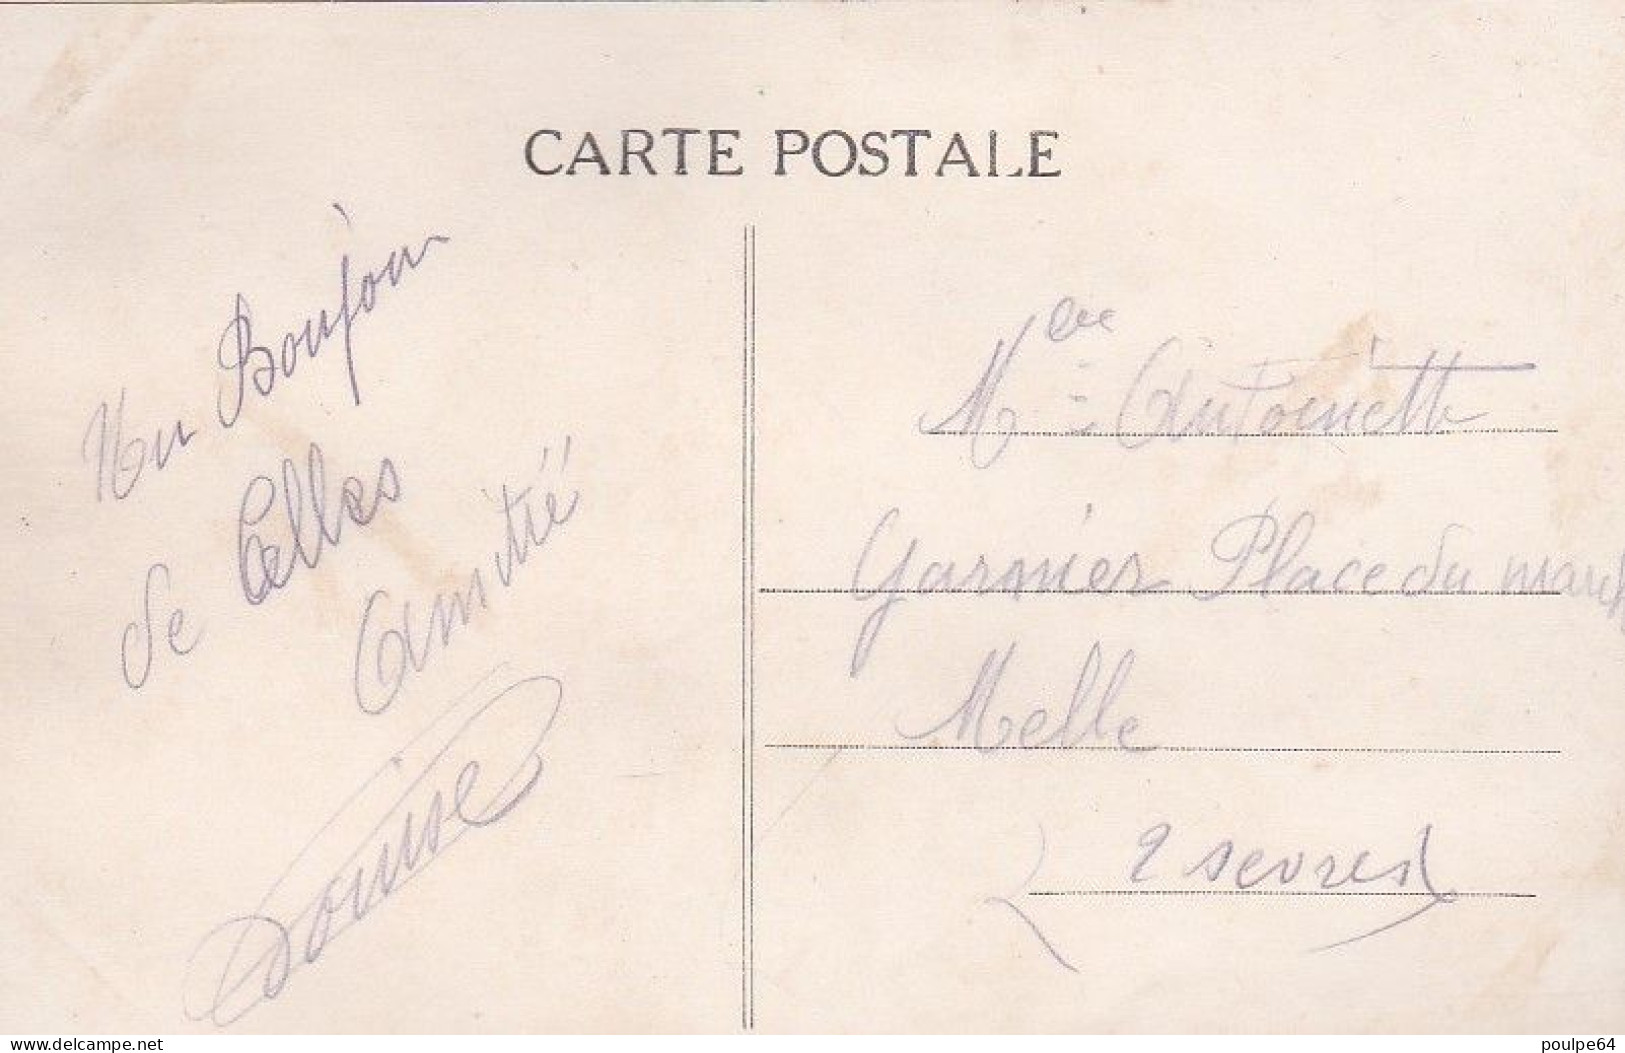 CARTE POSTALE
Un Bonjour
de Celles
Amitié
Louise
Melle Antoinette
Garnier Place du march
Melle
2 sevres
www.delcampe.net
poulpe64